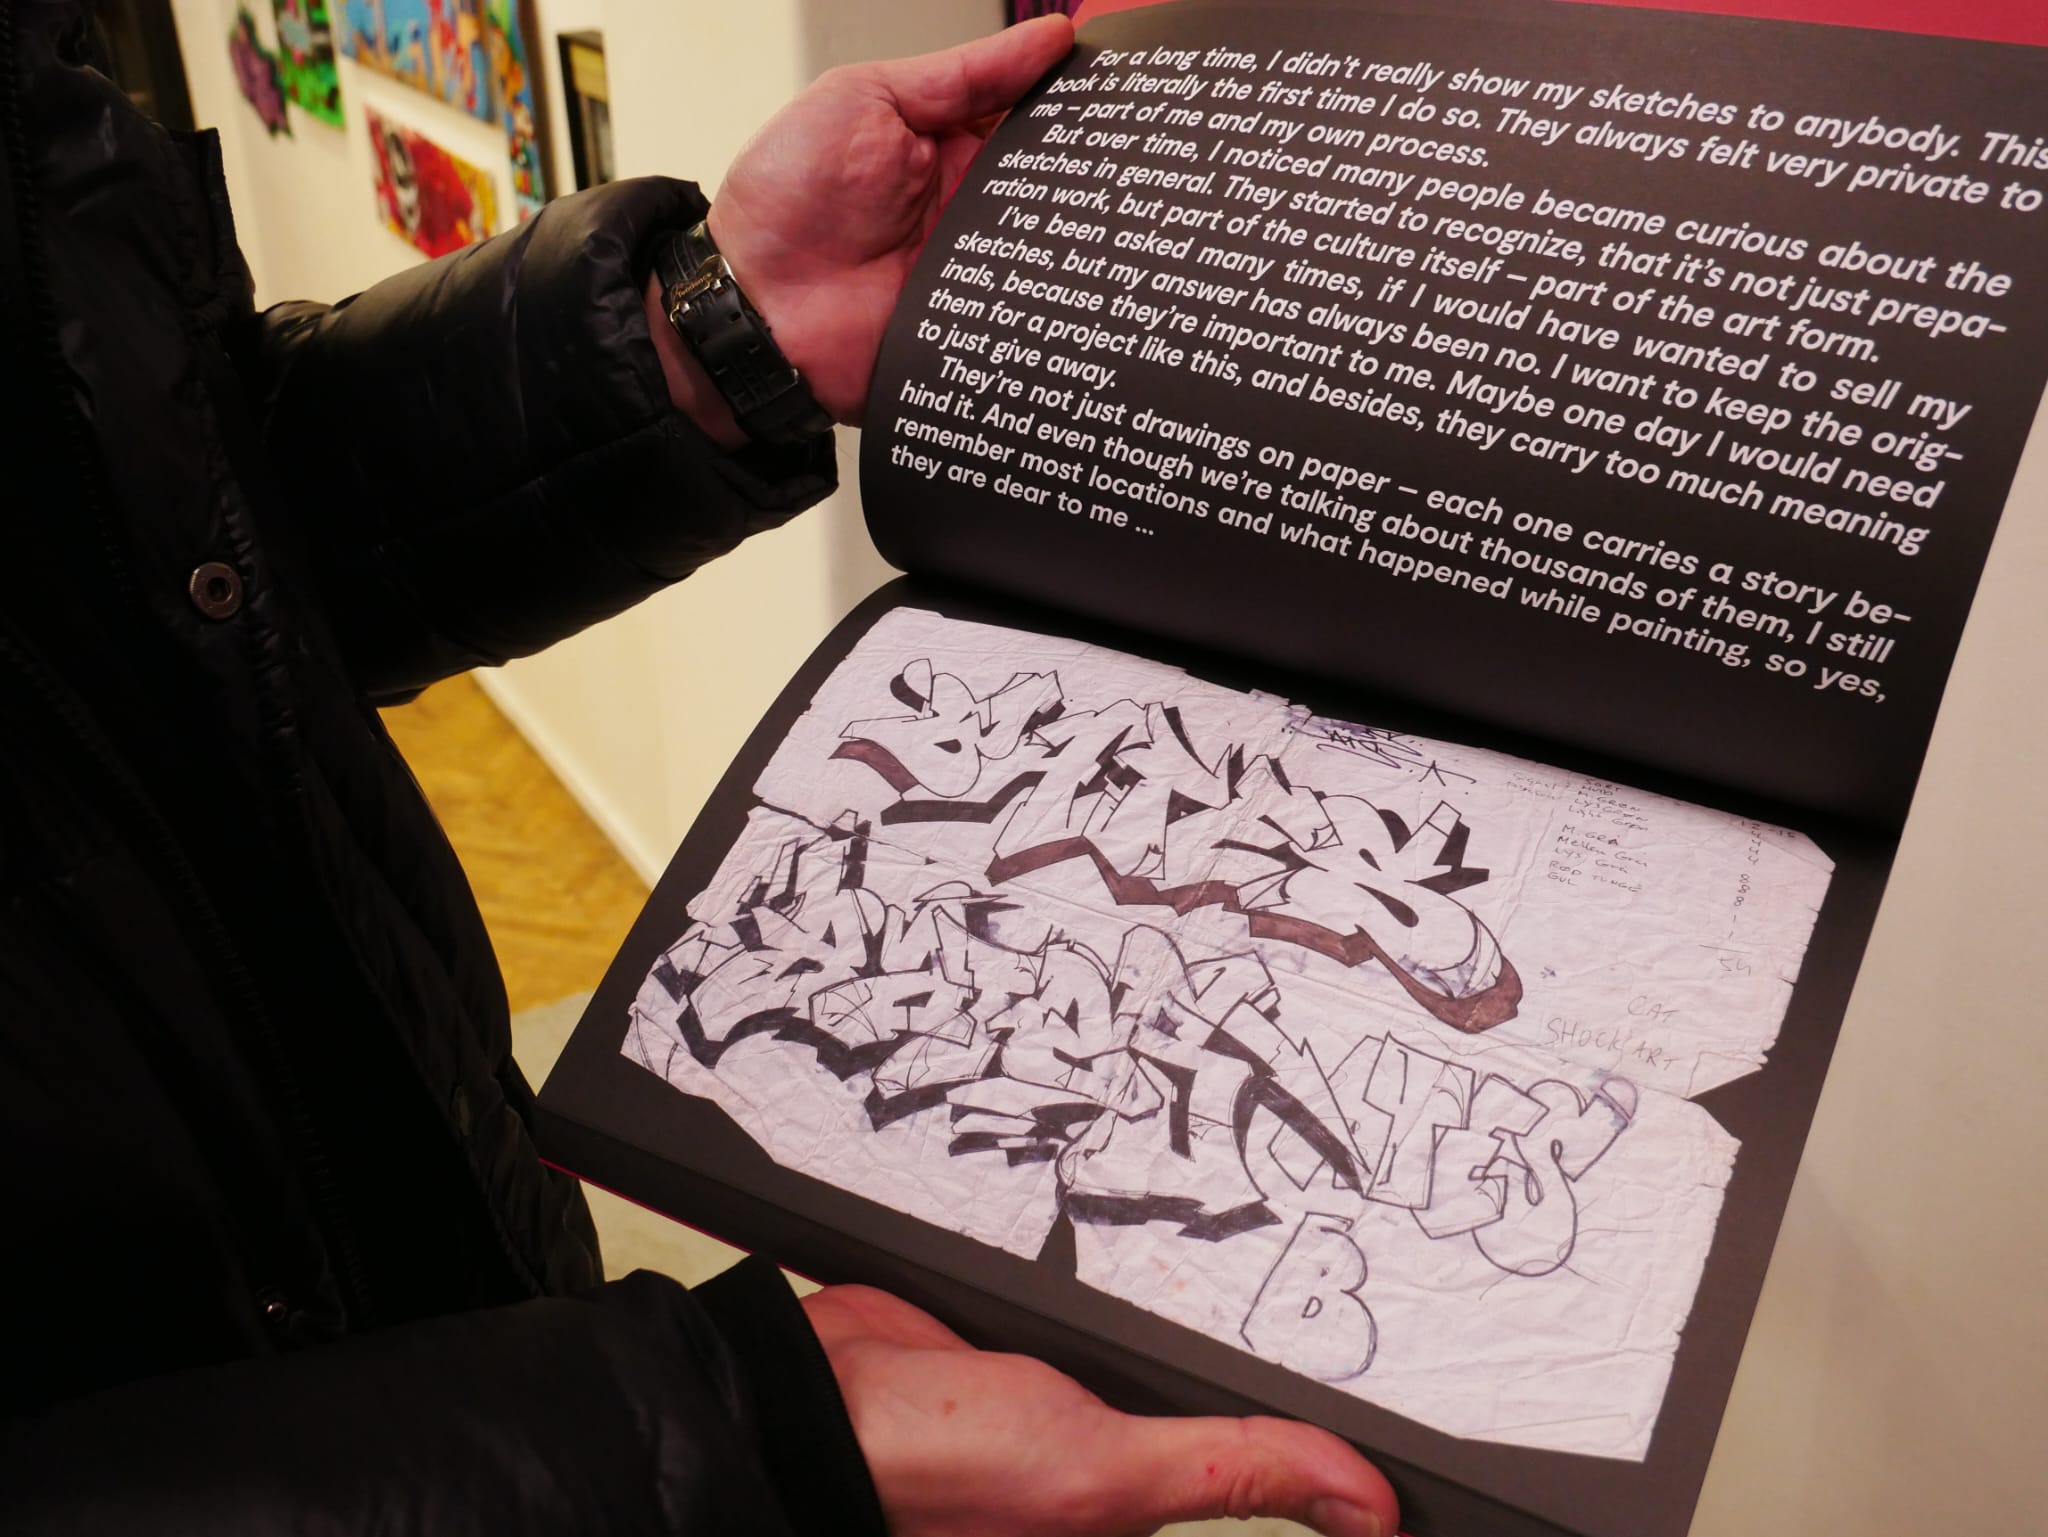 For a long time, I didn't really show my sketches to anybody. This
book is literally the first time I do so. They always felt very private to
me – part of me and my own process.
But over time, I noticed many people became curious about the
sketches in general. They started to recognize, that it's not just prepa-
ration work, but part of the culture itself – part of the art form.
I've been asked many times, if I would have wanted to sell my
sketches, but my answer has always been no. I want to keep the orig-
inals, because they're important to me. Maybe one day I would need
them for a project like this, and besides, they carry too much meaning
to just give away.
They're not just drawings on paper – each one carries a story be-
hind it. And even though we're talking about thousands of them, I still
remember most locations and what happened while painting, so yes,
they are dear to me ...
Tendence
BATES
M. GRØN
Lys GRØN
Light Grøn
M. GRÅ
Mellem Grå
Lys Grå
RØD TUNGE
GUL
54
CAT
SHOCK ART
B